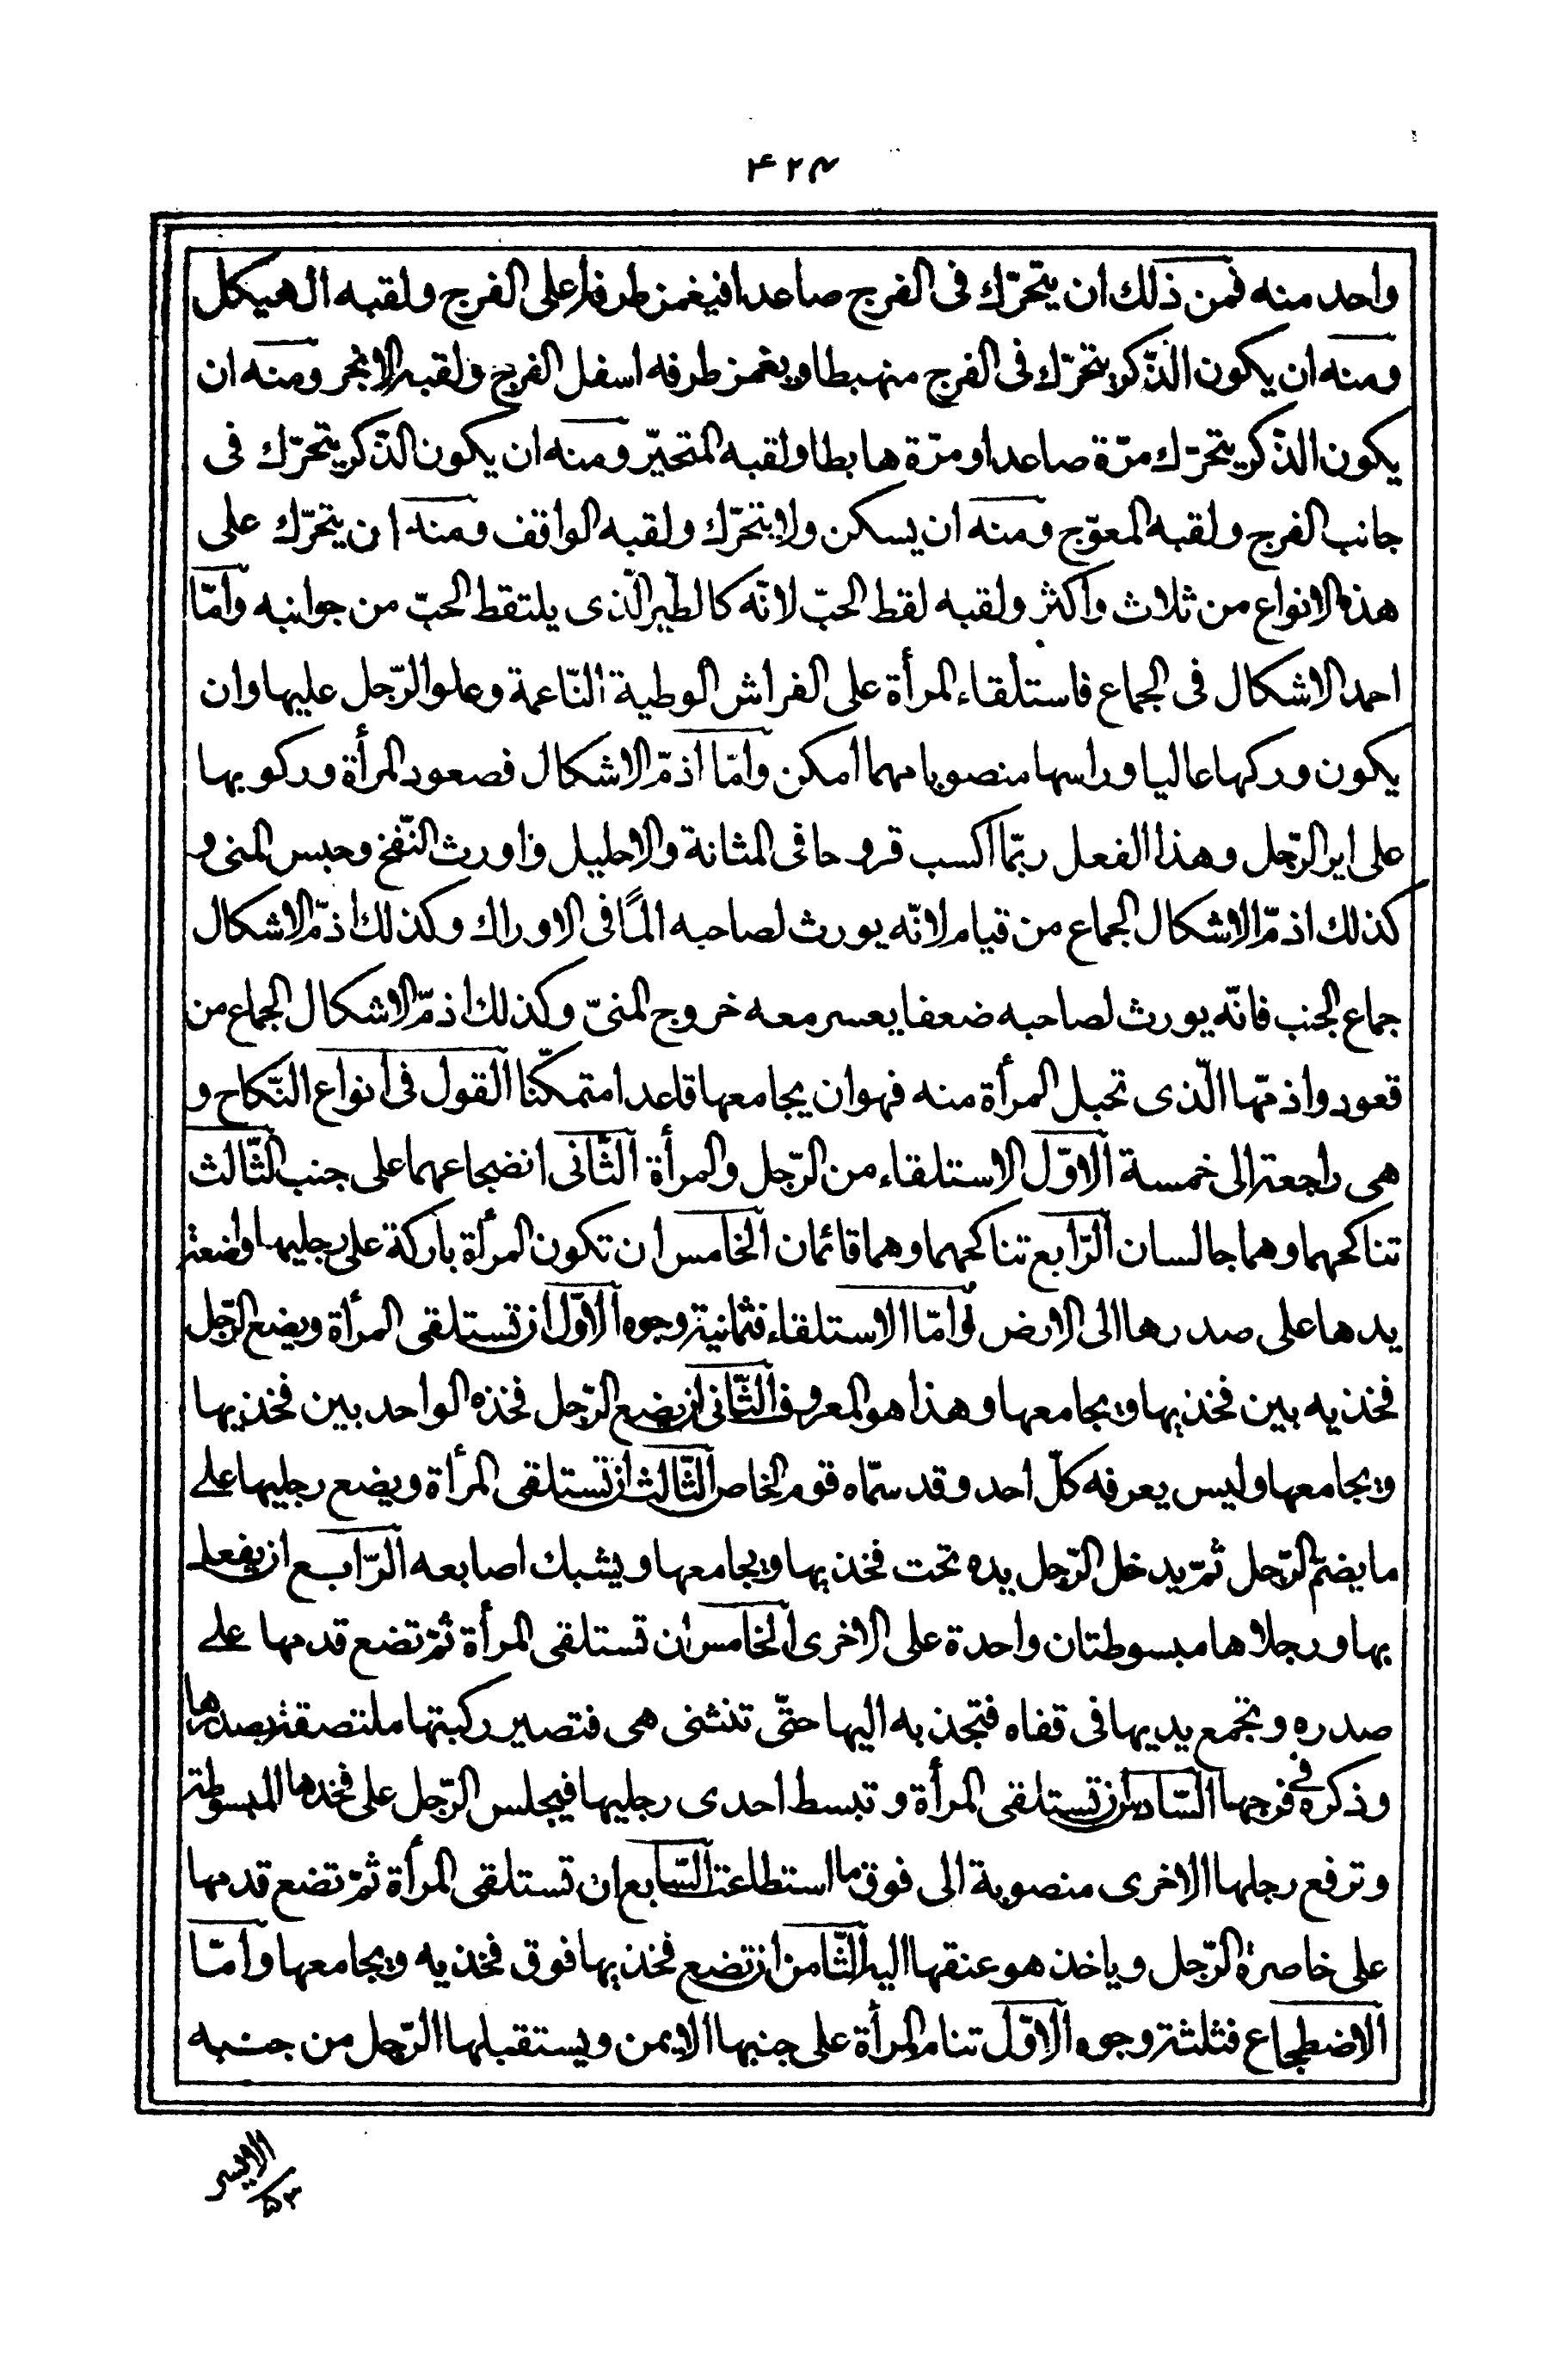 واحد منه فمن ذلك ان يتحرّك فى الفرج صاعدا فيغمز طرفه اعلى الفرج ولقبه الهيكل
ومنه ان يكون الذّكر يتحرّك فى الفرج منهبطا ويغمز طرفه اسفل الفرج ولقبه ومنه ان
يكون الذّكر يتحرّك مرّة صاعدا ومرّة هابطا ولقبه المتحيّر ومنه ان يكون الذّكر يتحرّك فى
جانب الفرج ولقبه المعوّج ومنه ان يسكن ولا يتحرّك ولقبه الواقف ومنه ان يتحرّك على
هذه الانواع من ثلاث واكثر ولقبه لقط الحبّ لانّه كالطّير الّذى يلتقط الحبّ من جوانبه وامّا
احمد الاشكال فى الجماع فاستلقاء المرأة على الفراش الوطية النّاعمة وعلو الرّجل عليها وان
يكون وركها عاليا وراسها منصوبا مهما امكن وامّا اذمّ الاشكال فصعود المرأة وركوبها
على اير الرّجل وهذا الفعل ربّما اكسب قروحا فى المثانة والاحليل واورث النّفخ وحبس المنى و
كذلك اذمّ الاشكال الجماع من قيام لانّه يورث لصاحبه المًا فى الاوراك وكذلك اذمّ الاشكال
جماع الجنب فانّه يورث لصاحبه ضعفا يعسر معه خروج المنىّ وكذلك اذمّ الاشكال الجماع من
قعود واذمّها الّذى تحبل المرأة منه فهو ان يجامعها قاعدا متمكّنا القول فى انواع النّكاح و
هى راجعة الى خمسة الاوّل الاستلقاء من الرّجل والمرأة الثّانى انضجاعهما على جنب الثّالث
تناكحهما وهما جالسان الرّابع تناكحهما وهما قائمان الخامس ان تكون المرأة باركة على رجليها واضعة
يدها على صدرها الى الارض وامّا الاستلقاء فثمانية وجوه الاوّل ان تستلقى المرأة ويضع الرّجل
فخذيه بين فخذيها ويجامعها وهذا هو المعروف الثّانى ان يضع الرّجل فخذه الواحد بين فخذيها
ويجامعها وليس يعرفه كلّ احد وقد سمّاه قوم الخاص الثّالث ان تستلقى المرأة ويضع رجليها على
ما يضمّ الرّجل ثمّ يدخل الرّجل يده تحت فخذيها ويجامعها ويشبك اصابعه الرّابع ان يفعل
بها ورجلاها مبسوطتان واحدة على الاخرى الخامس ان تستلقى المرأة ثمّ تضع قدمها على
صدره وتجمع يديها فى قفاه فتجذبه اليها حتّى تنثنى هى فتصير ركبتها ملتصقة بصدرها
وذكره فى فرجها السّادس ان تستلقى المرأة وتبسط احدى رجليها فيجلس الرّجل على فخذها المبسوطة
وترفع رجلها الاخرى منصوبة الى فوق ما استطاعت السّابع ان تستلقى المرأة ثمّ تضع قدمها
على خاصرة الرّجل وياخذ هو عنقها اليه الثّامن ان تضع فخذيها فوق فخذيه ويجامعها وامّا
الاضطجاع فثلثة وجوه الاوّل تنام المرأة على جنبها الايمن ويستقبلها الرّجل من جنبه
الايسر
٥٣